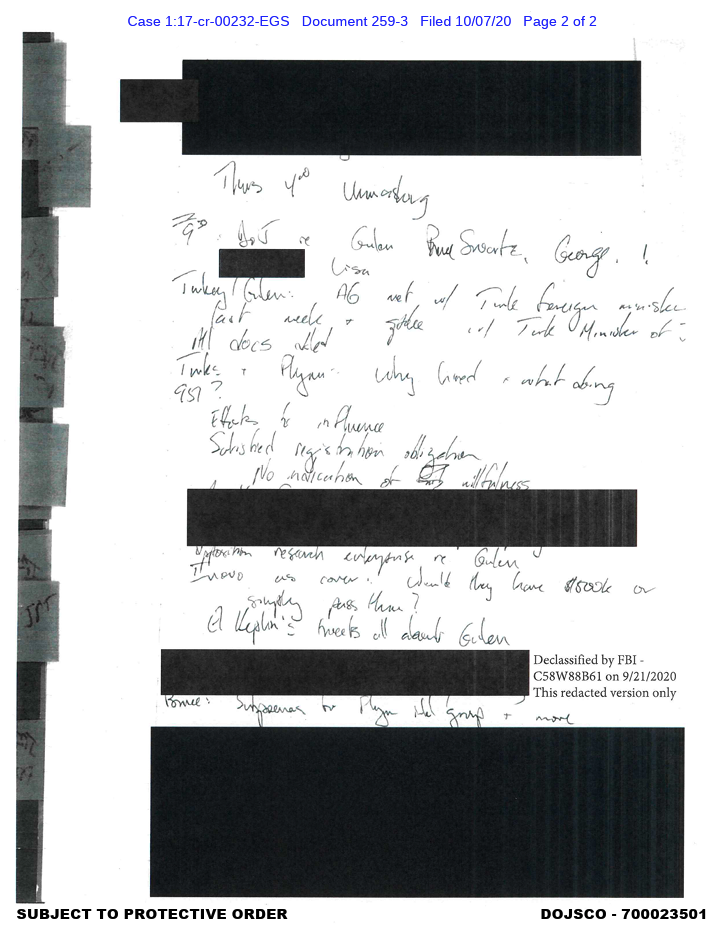 Case 1:17-cr-00232-EGS Document 259-3 Filed 10/07/20 Page 2 of 2
Thurs 4:00 Unmasking
DoJ re Gulen Bruce Swartz, George, !
Lisa
Turkey/Gulen: AG met w/ Turk foreign minister
last week + w/ Turk Minister of
docs
Turks + Flynn: Why hired + what doing
951?
Efforts to influence
Satisfied registration obligation
No indication of willfulness
Opposition research enterprise re Gulen
Inovo as cover. Would they have $500k or
simply pass thru?
tweets all about Gulen
Declassified by FBI -
C58W88B61 on 9/21/2020
This redacted version only
Bruce: Subpoenas for Flynn Intel group + more
SUBJECT TO PROTECTIVE ORDER
DOJSCO - 700023501